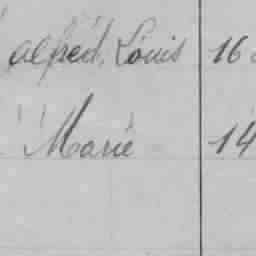 alfred, Louis 16
Marie 14